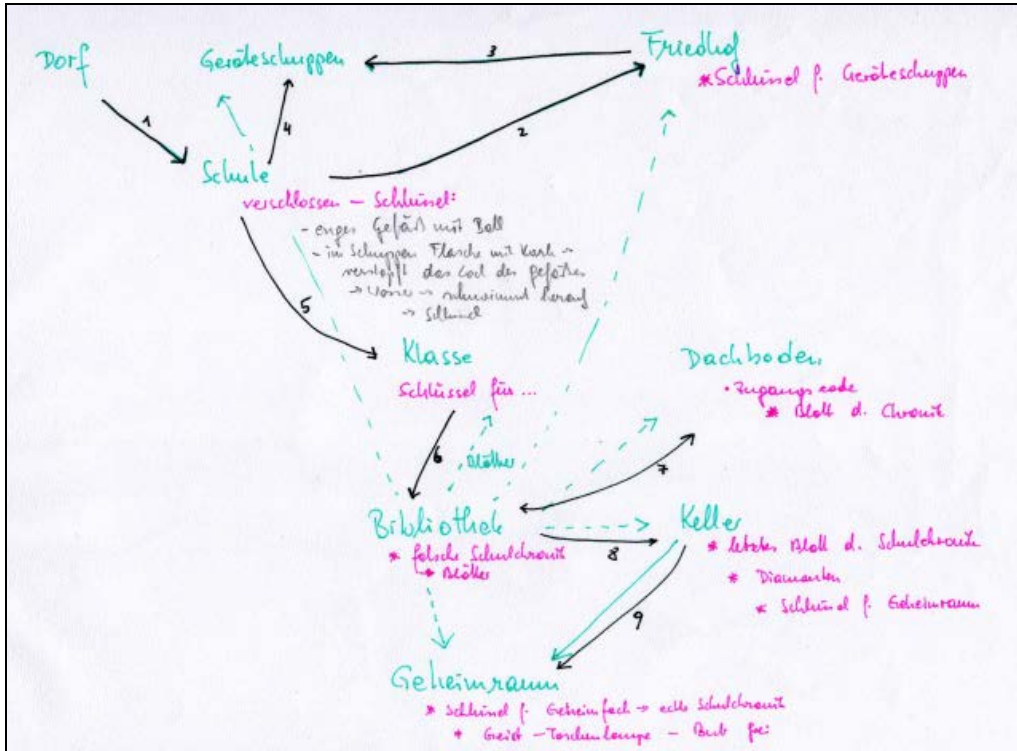 Dorf
Geräteschuppen
3
Friedhof
* Schlüssel f. Geräteschuppen
1
4
2
Schule
verschlossen – Schlüssel:
- enges Gefäß mit Ball
- in Schuppen Flasche mit Kork –
verstopft das Loch des Gefäßes
→ Wasser → schwimmt herauf
→ Schlüssel
5
Klasse
Schlüssel für ...
Dachboden
· Zugangscode
* Blatt d. Chronik
6
Blätter
7
Bibliothek
* falsche Schulchronik
* Blätter
8
Keller
* letztes Blatt d. Schulchronik
* Diamanten
* Schlüssel f. Geheimraum
9
Geheimraum
* Schlüssel f. Geheimfach → echte Schulchronik
* Geist – Taschenlampe – Bub frei